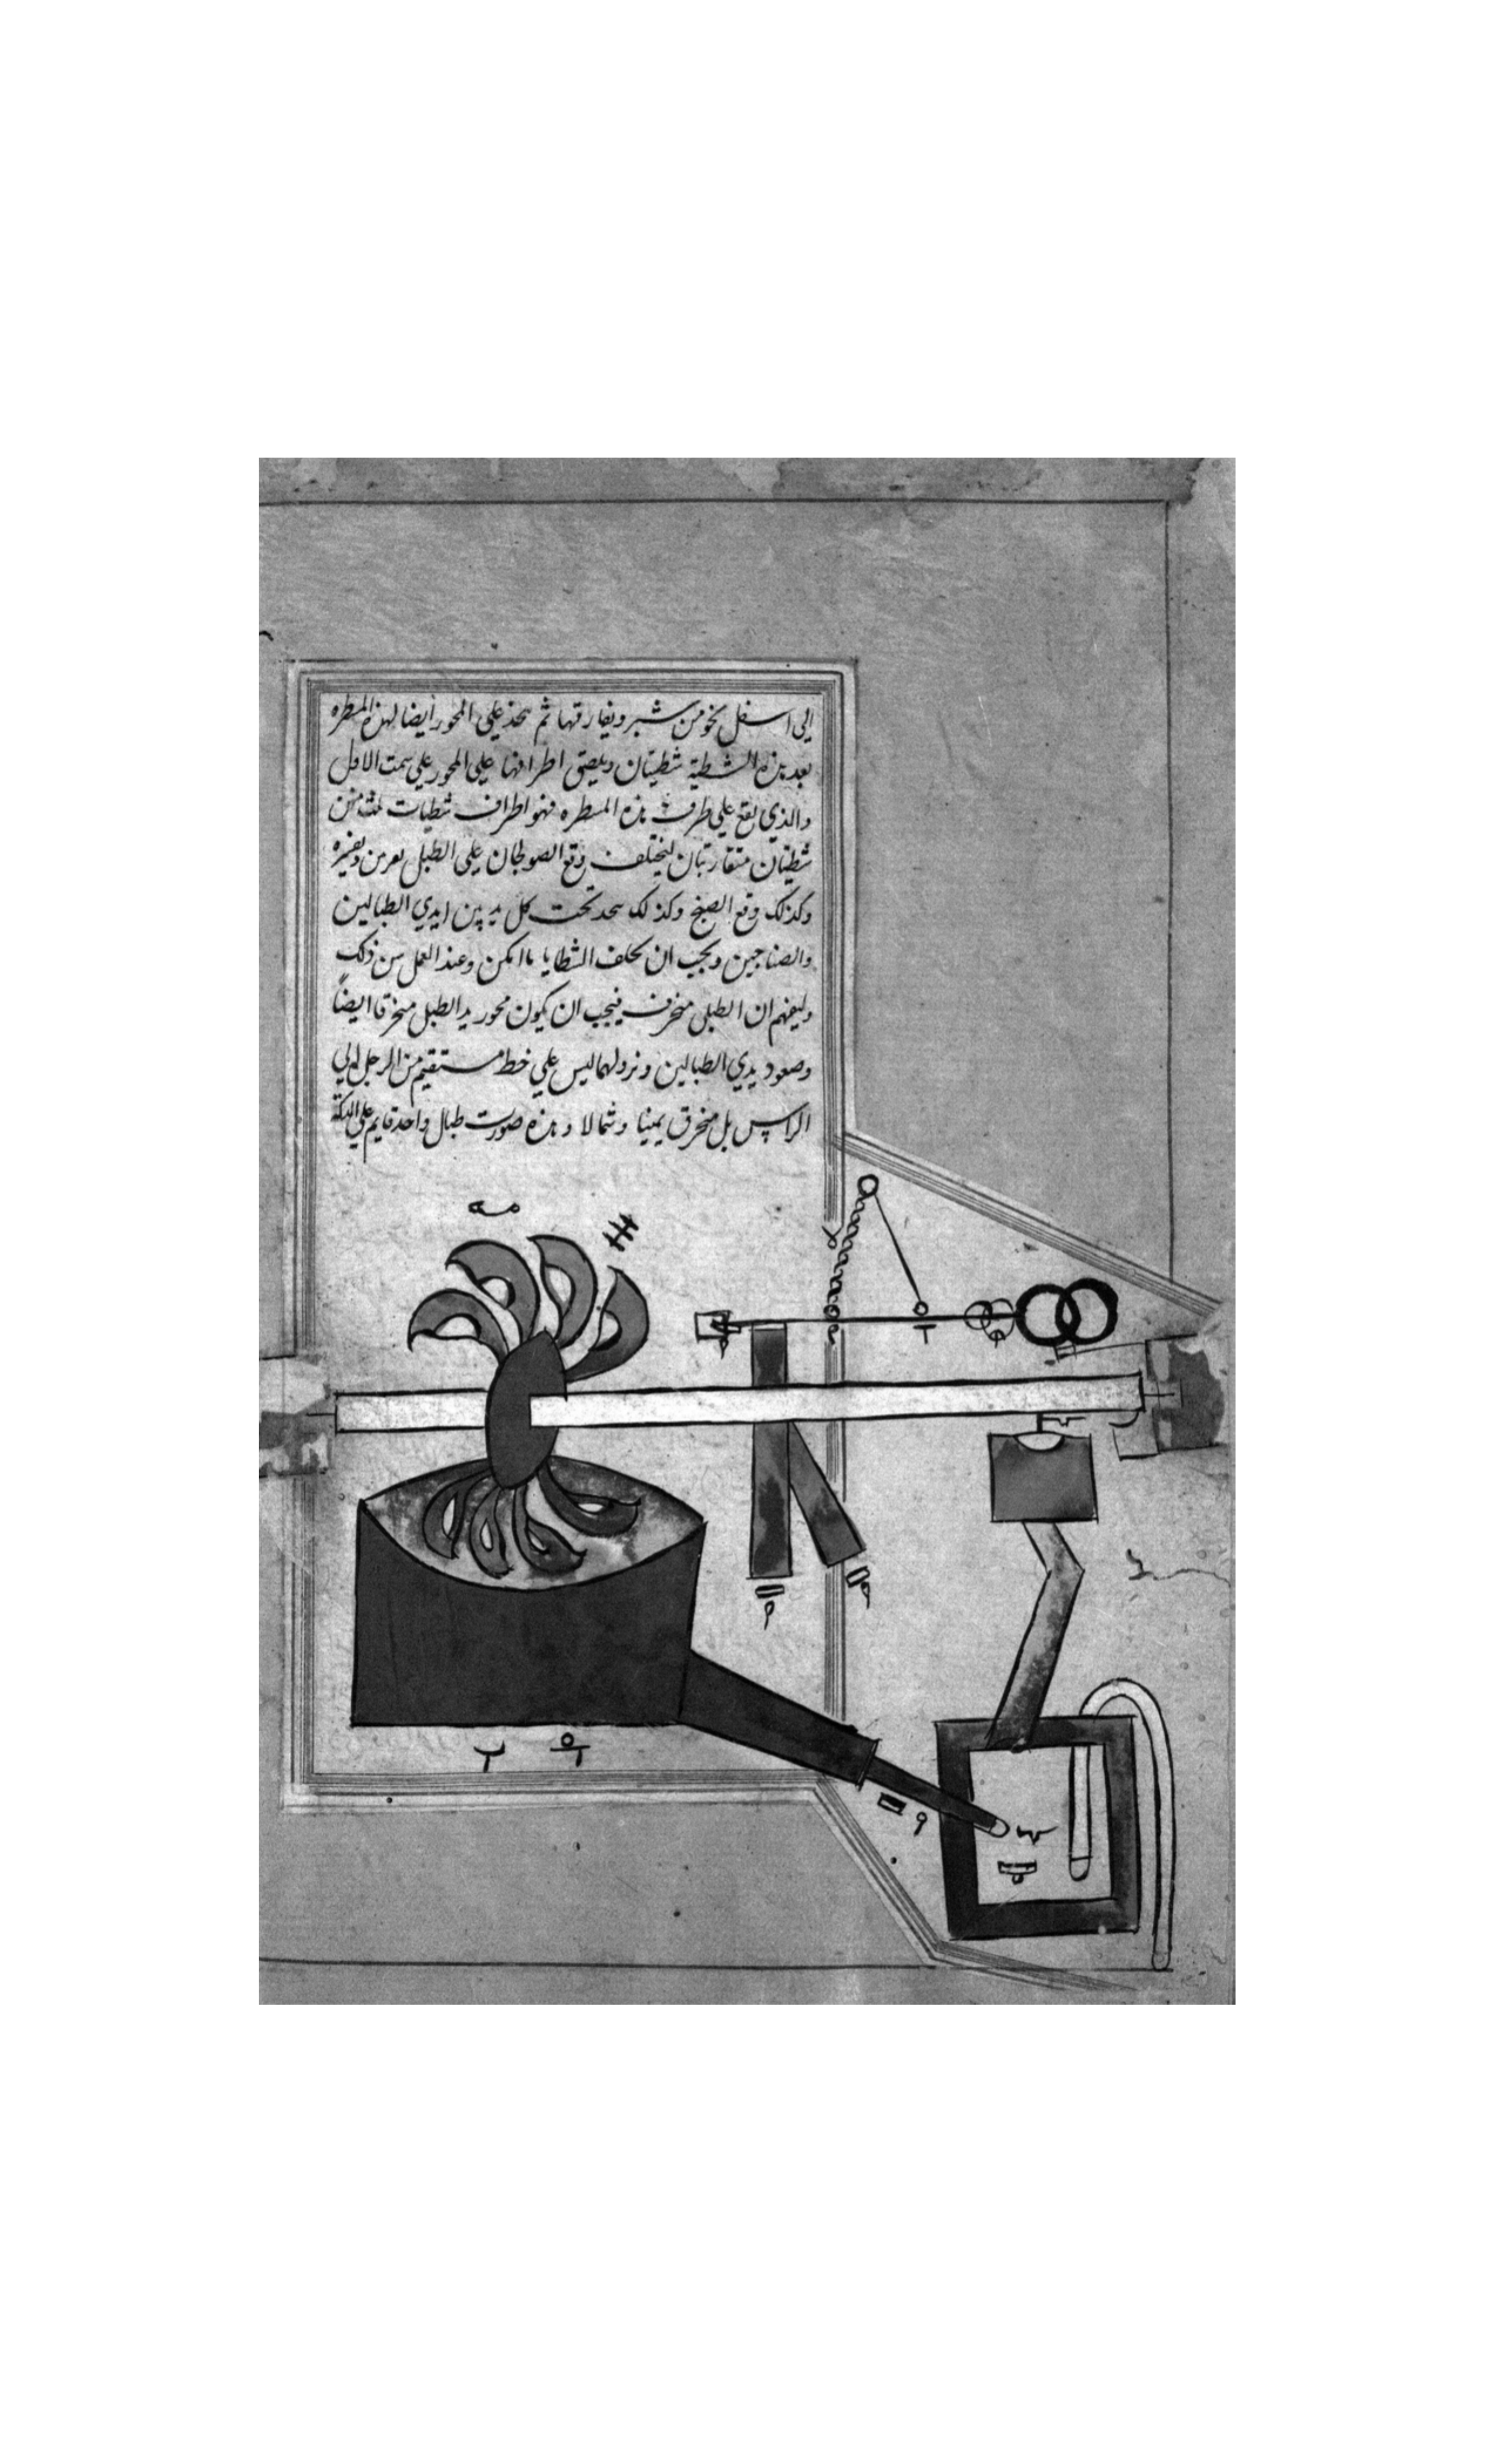 الي اسفل نحو من شبر ويفارقها ثم يتخذ علي المحور ايضا لهذه المسطره
بعد هذه الشطية شطيتان ويلصق اطرافها علي المحور علي سمت الاول
والذي يقع علي طرف هذه المسطره فهو اطراف شطيات ثلث منهن
شطيتان متقاربتان ليختلف وقع الصولجان علي الطبل بعرمن وبغيره
وكذلك وقع الصنج وكذلك يتخذ تحت كل يد من ايدي الطبالين
والصناجين ويجب ان يخلف الشظايا ما امكن وعند العمل ذلك
وليفهم ان الطبل منحرف فيجب ان يكون محور يد الطبل منحرفا ايضاً
وصعود يدي الطبالين ونزولهما ليس علي خط مستقيم من الرجل الي
الراس بل منحرف يمينا وشمالا وهذه صورت طبال واحد قايم علي الدكة